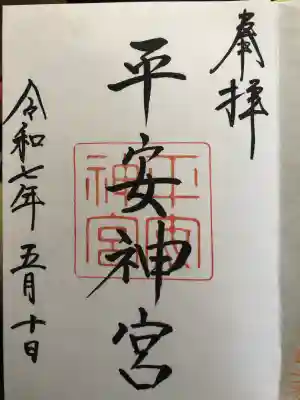 奉拝
平安神宮
平安神宮
令和七年 五月十日